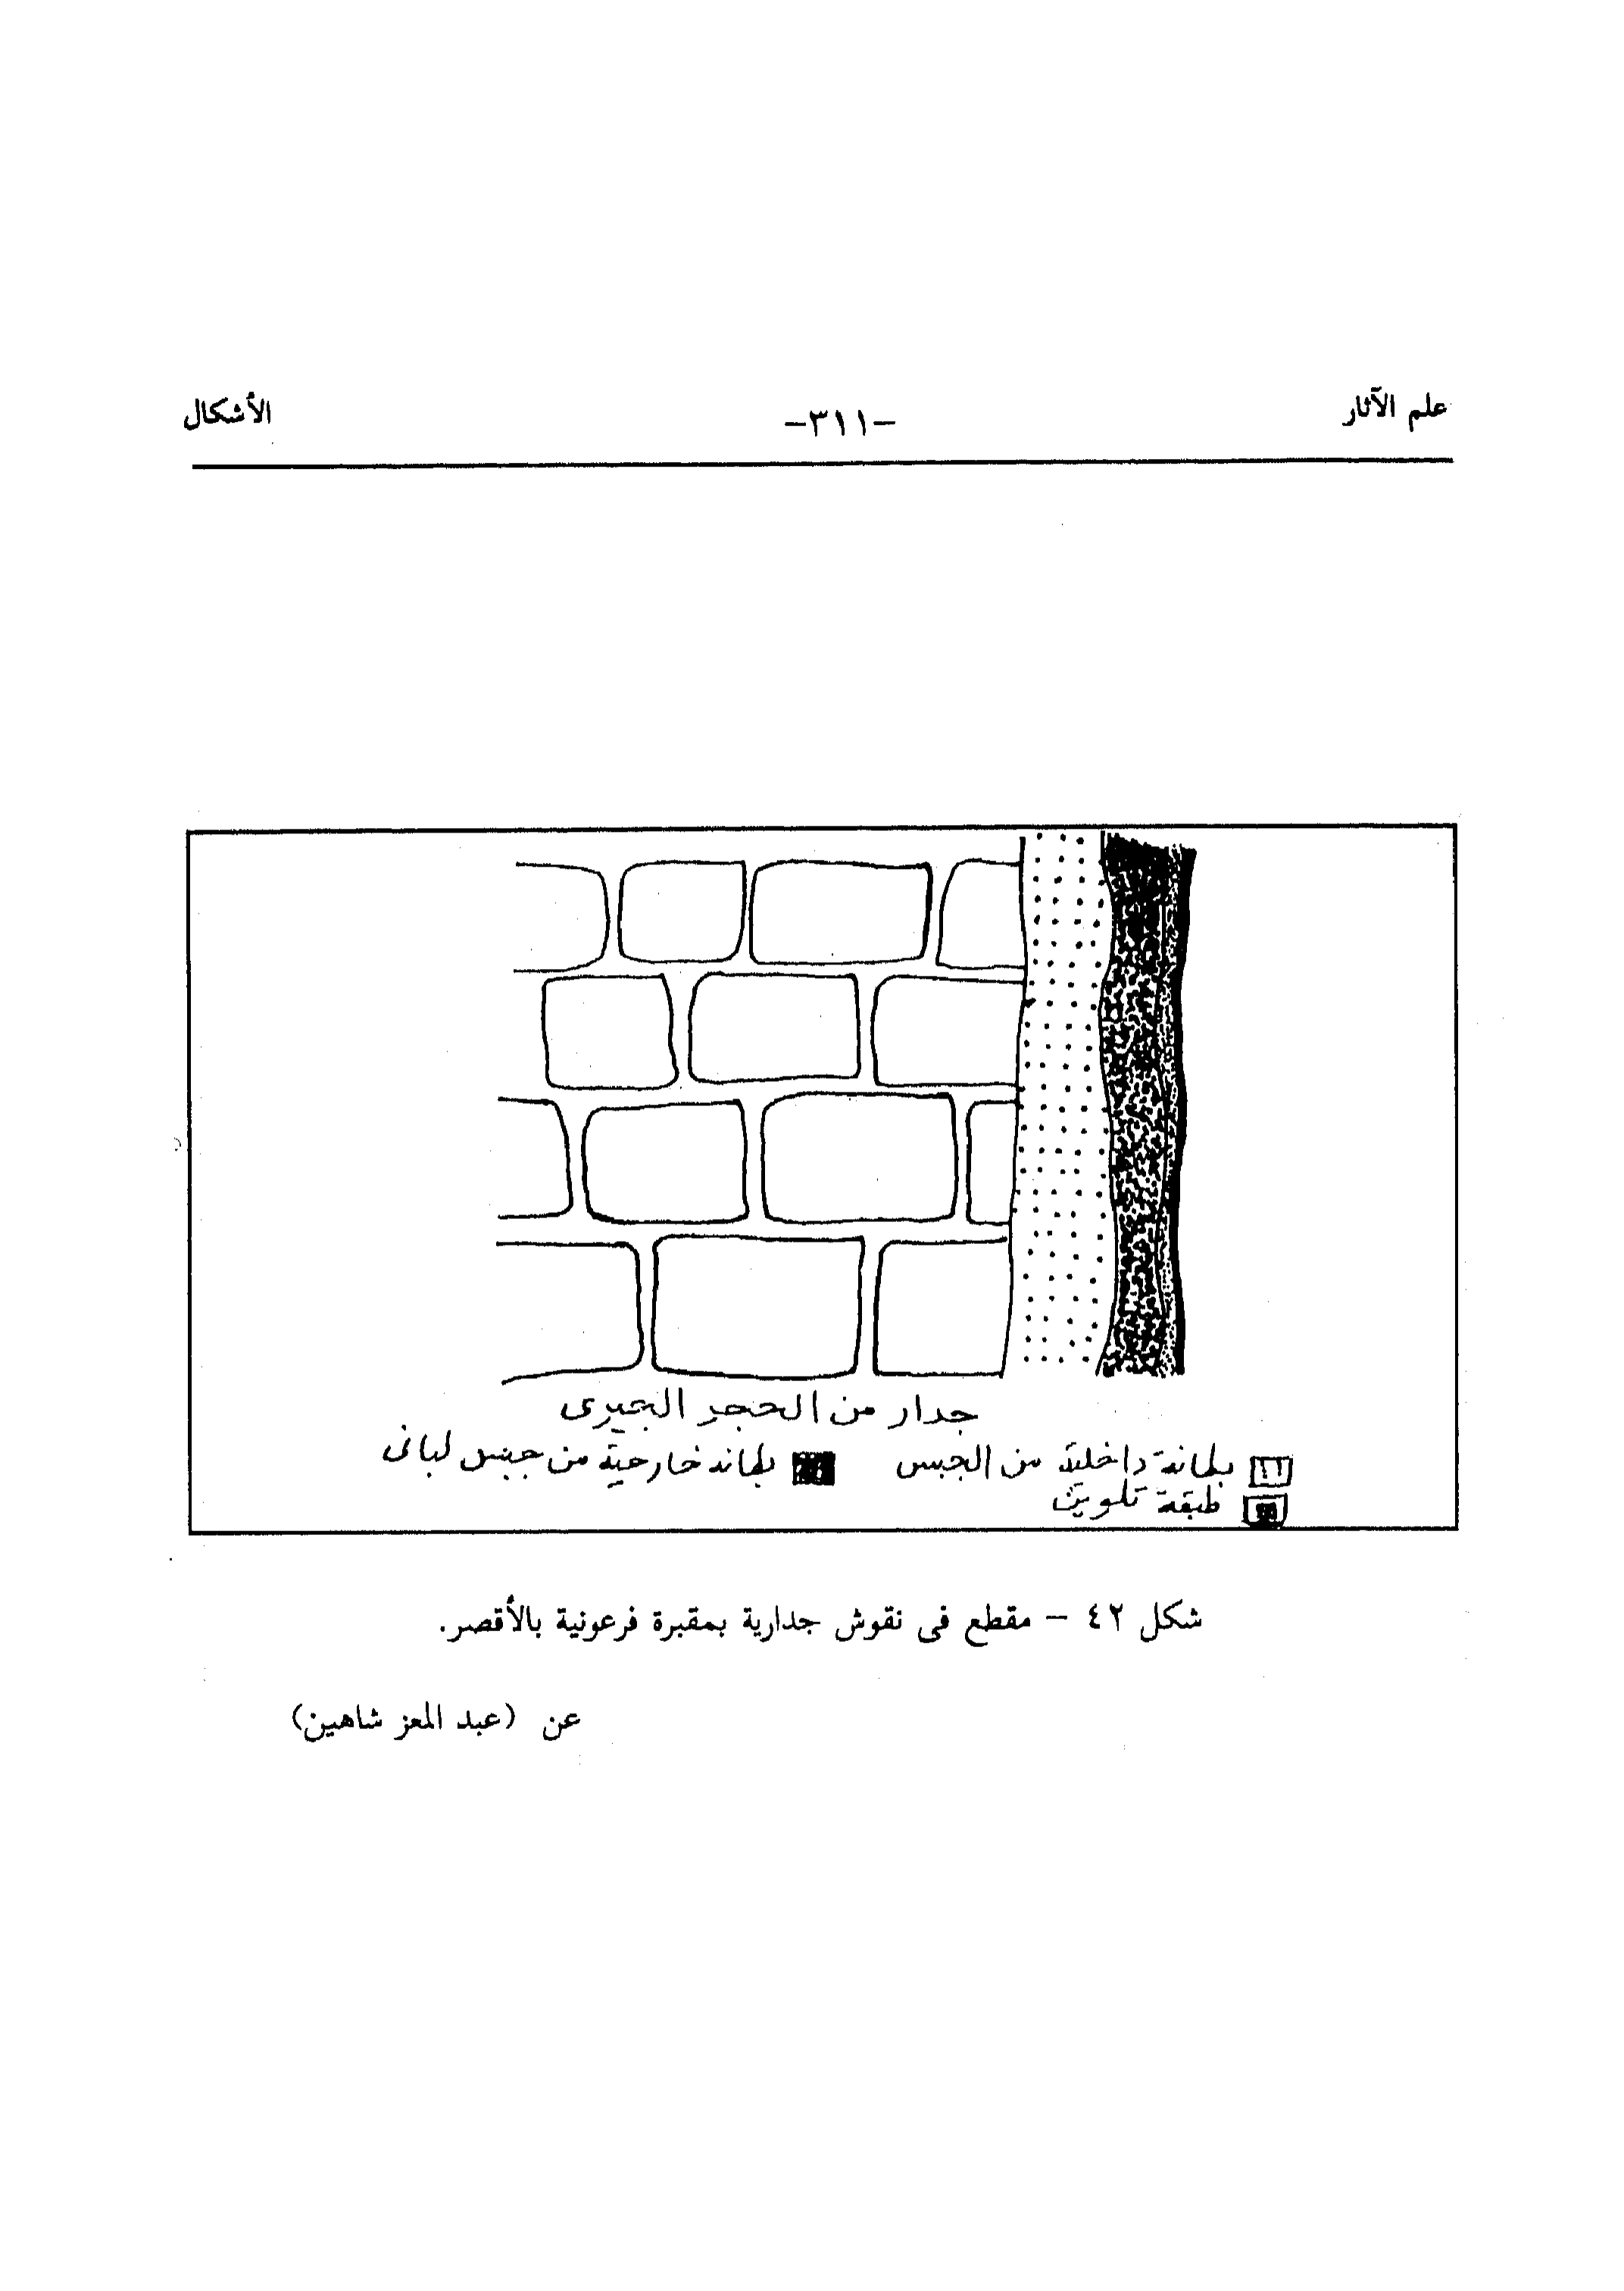 علم الآثار -٣١١- الأشكال
جدار من الحجر الجيرى
بطانة داخلية من الجبس بطانه خارجية من جبس لبانى
طبقة تلوين
شكل ٤٢ - مقطع فى نقوش جدارية بمقبرة فرعونية بالأقصر.
عن (عبد المعز شاهين)